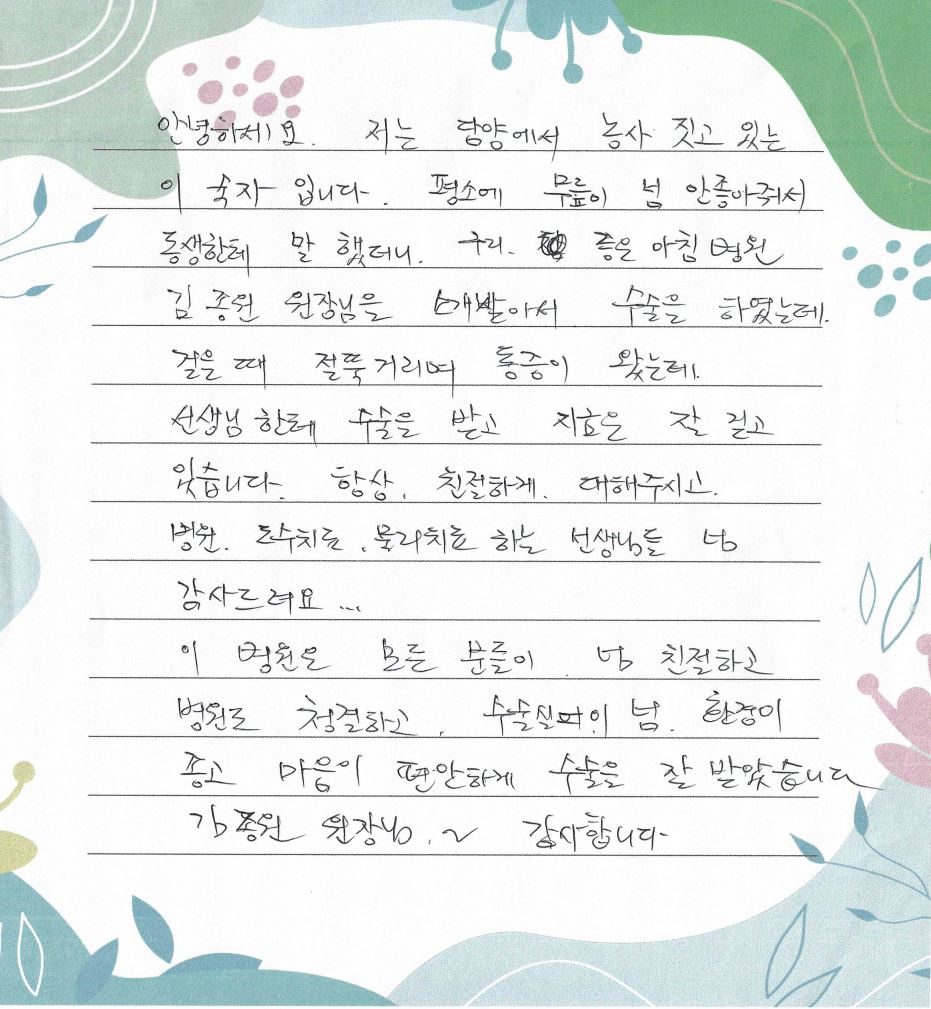 안녕하세요. 저는 담양에서 농사 짓고 있는
이 숙자 입니다. 평소에 무릎이 넘 안좋아줘서
동생한테 말 했더니. 구리. 좋은 아침 병원
김 종원 원장님을 소개받아서 수술을 하였는데.
걸을 때 절뚝거리며 통증이 왔는데.
선생님 한테 수술을 받고 지효은 잘 걷고
있습니다. 항상. 친절하게. 대해주시고.
병원. 도수치료. 물리치료 하는 선생님들 넘
감사드려요...
이 병원은 모든 분들이 넘 친절하고
병원도 청결하고. 수술실 넘. 환경이
좋고 마음이 편안하게 수술을 잘 받았습니다
김종원 원장님.~ 감사합니다-